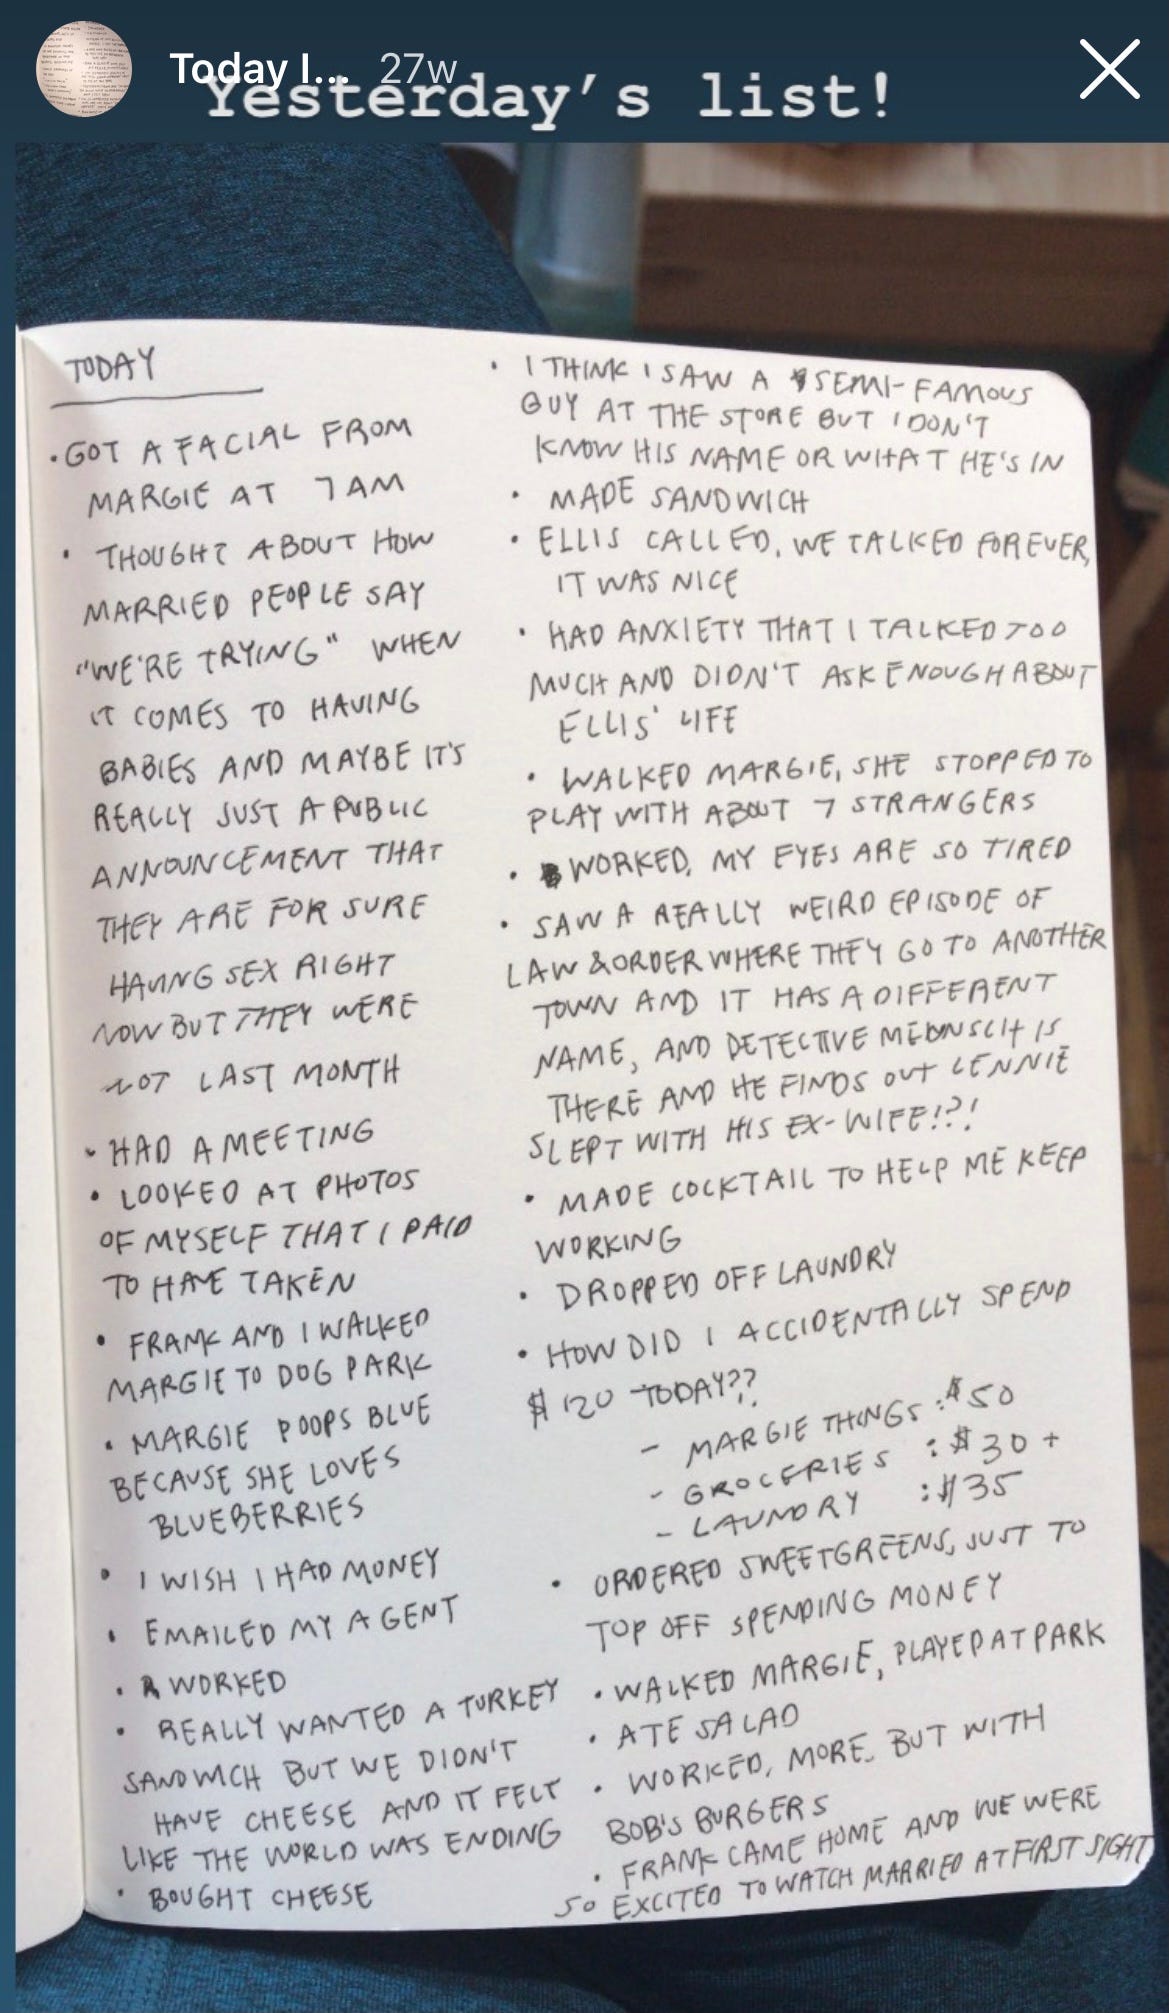 Today I... 27w
Yesterday's list!
TODAY
• GOT A FACIAL FROM
MARGIE AT 7 AM
• THOUGHT ABOUT HOW
MARRIED PEOPLE SAY
"WE'RE TRYING" WHEN
IT COMES TO HAVING
BABIES AND MAYBE IT'S
REALLY JUST A PUBLIC
ANNOUNCEMENT THAT
THEY ARE FOR SURE
HAVING SEX RIGHT
NOW BUT THEY WERE
NOT LAST MONTH
• HAD A MEETING
• LOOKED AT PHOTOS
OF MYSELF THAT I PAID
TO HAVE TAKEN
• FRANK AND I WALKED
MARGIE TO DOG PARK
• MARGIE POOPS BLUE
BECAUSE SHE LOVES
BLUEBERRIES
• I WISH I HAD MONEY
• EMAILED MY AGENT
• WORKED
• REALLY WANTED A TURKEY
SANDWICH BUT WE DIDN'T
HAVE CHEESE AND IT FELT
LIKE THE WORLD WAS ENDING
• BOUGHT CHEESE
• I THINK I SAW A SEMI-FAMOUS
GUY AT THE STORE BUT I DON'T
KNOW HIS NAME OR WHAT HE'S IN
• MADE SANDWICH
• ELLIS CALLED, WE TALKED FOREVER,
IT WAS NICE
• HAD ANXIETY THAT I TALKED TOO
MUCH AND DIDN'T ASK ENOUGH ABOUT
ELLIS' LIFE
• WALKED MARGIE, SHE STOPPED TO
PLAY WITH ABOUT 7 STRANGERS
• WORKED, MY EYES ARE SO TIRED
• SAW A REALLY WEIRD EPISODE OF
LAW & ORDER WHERE THEY GO TO ANOTHER
TOWN AND IT HAS A DIFFERENT
NAME, AND DETECTIVE MEUNSCH IS
THERE AND HE FINDS OUT LENNIE
SLEPT WITH HIS EX-WIFE!?!
• MADE COCKTAIL TO HELP ME KEEP
WORKING
• DROPPED OFF LAUNDRY
• HOW DID I ACCIDENTALLY SPEND
$120 TODAY??
- MARGIE THINGS : $50
- GROCERIES : $30 +
- LAUNDRY : $35
• ORDERED SWEETGREENS, JUST TO
TOP OFF SPENDING MONEY
• WALKED MARGIE, PLAYED AT PARK
• ATE SALAD
• WORKED, MORE. BUT WITH
BOB'S BURGERS
• FRANK CAME HOME AND WE WERE
SO EXCITED TO WATCH MARRIED AT FIRST SIGHT